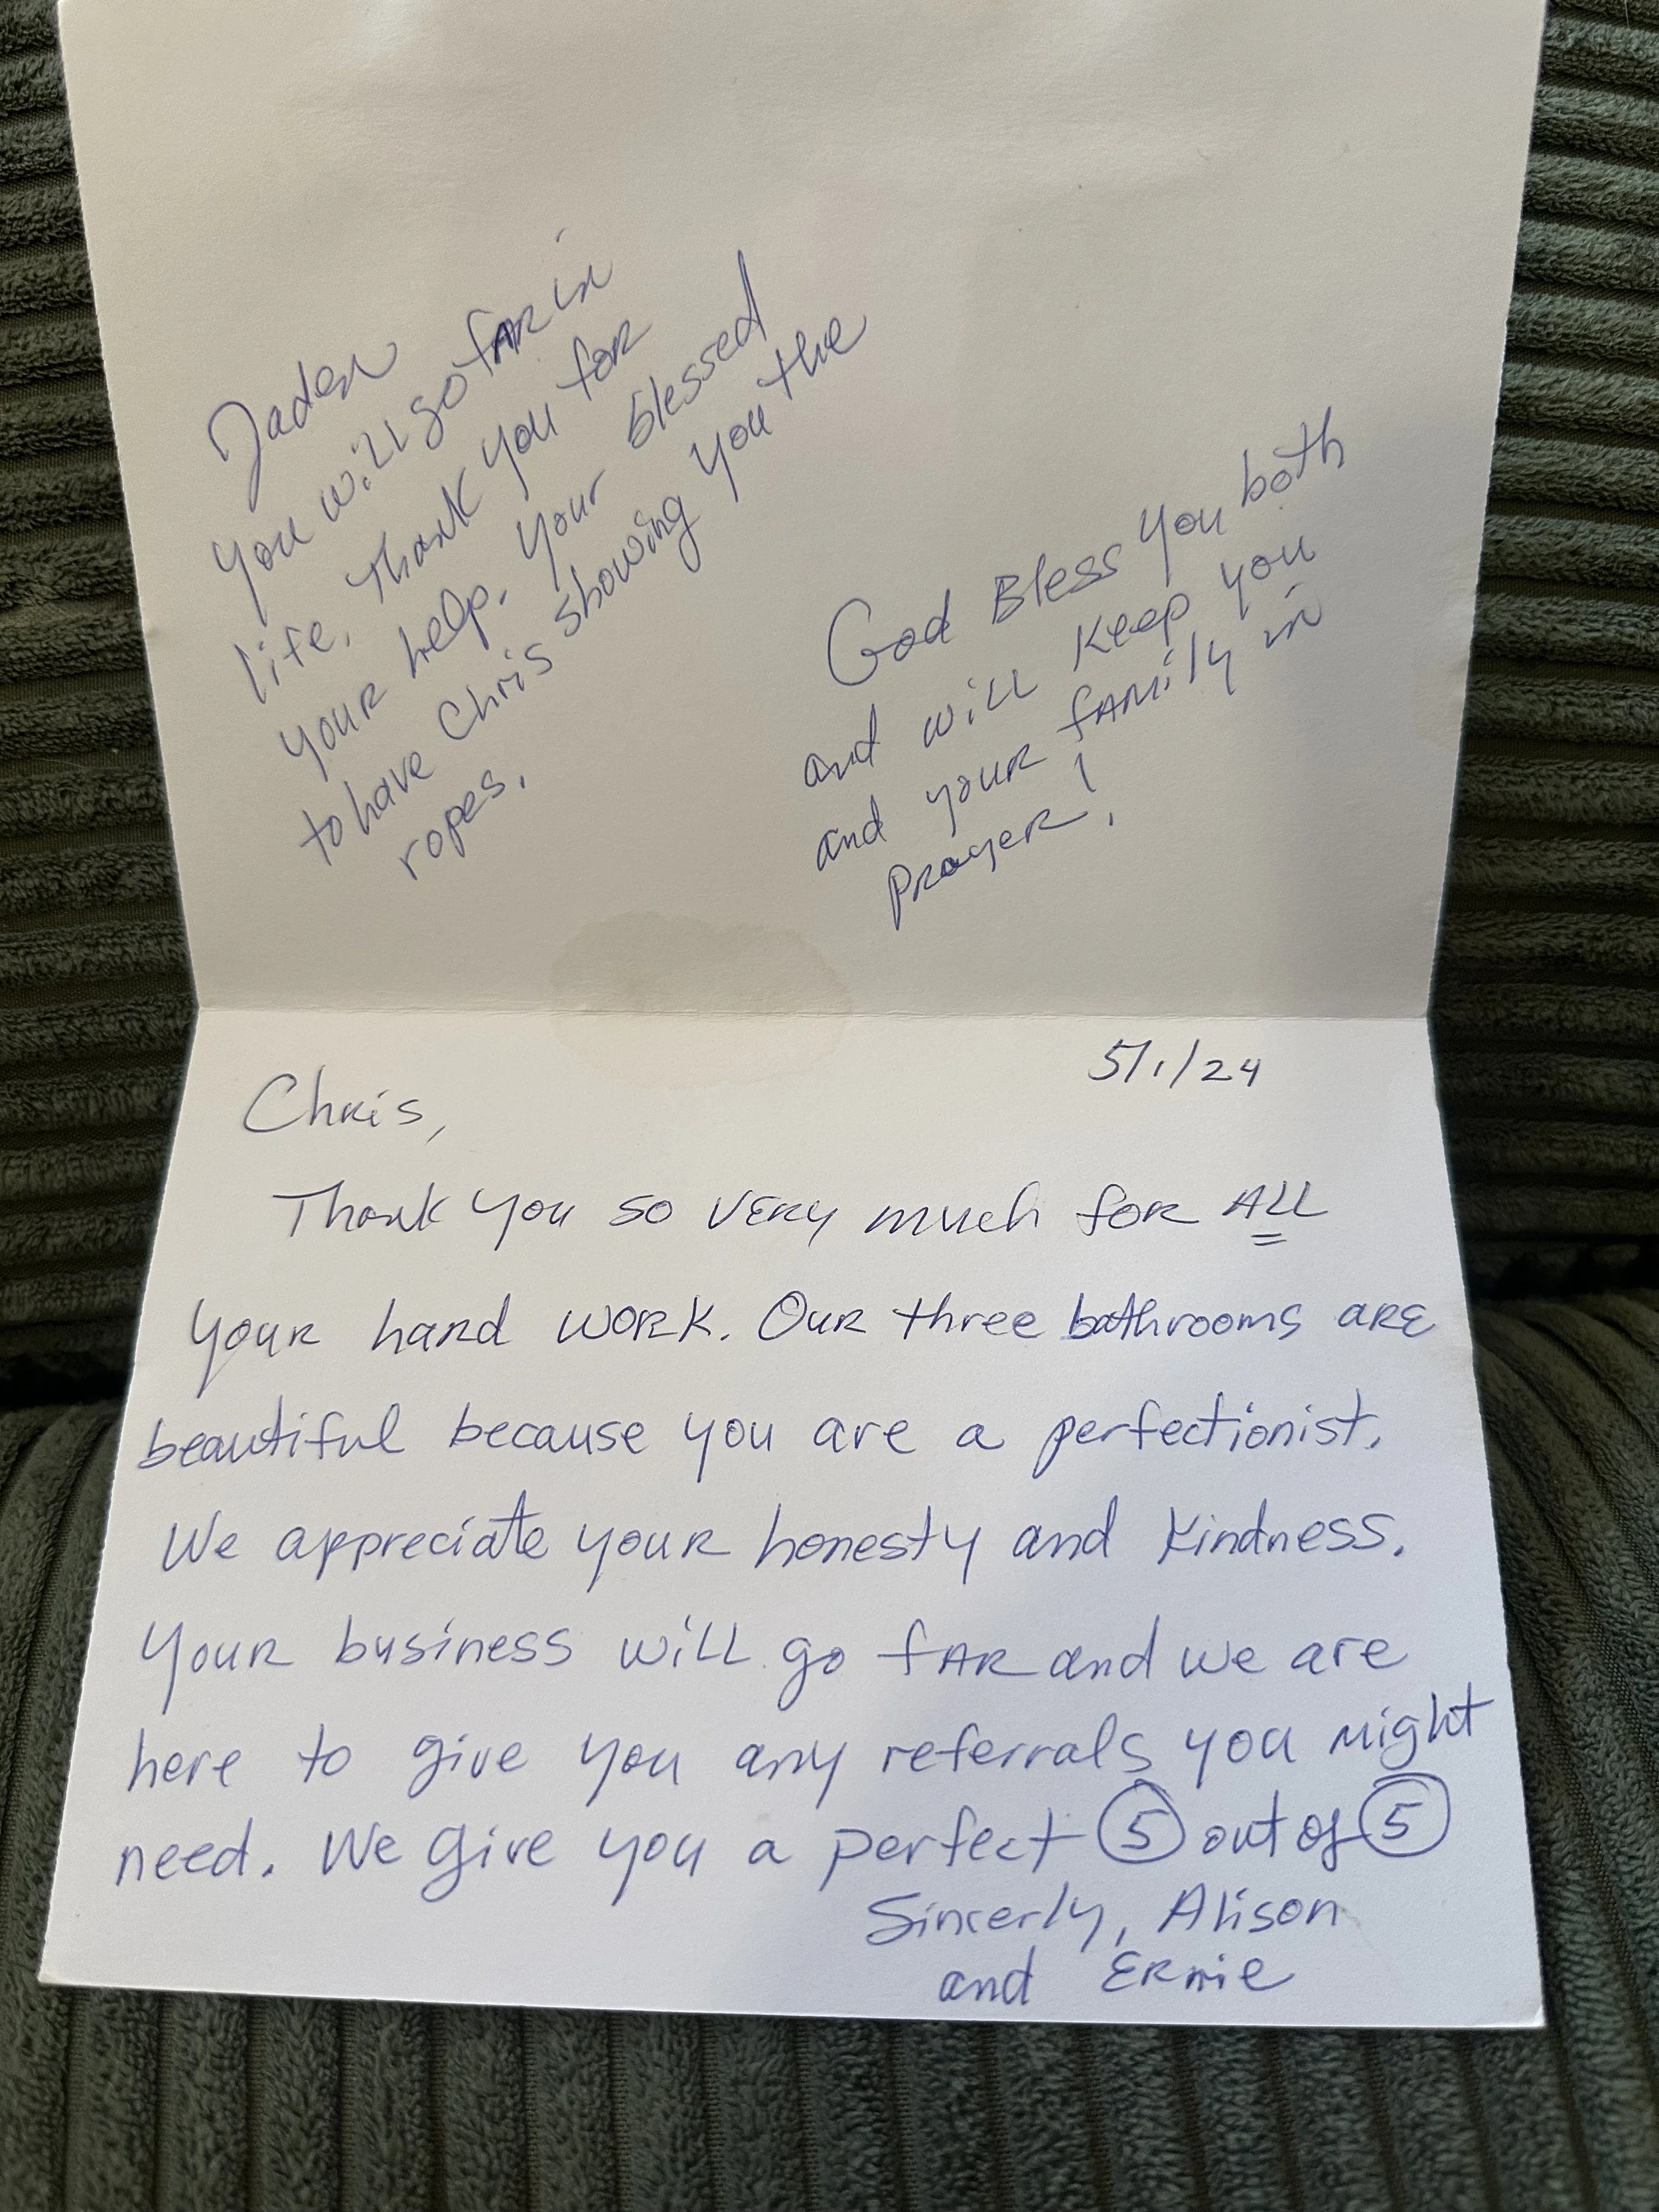 Jaden
you will go far in
life. Thank you for
your help. Your blessed
to have Chris showing you the
ropes.
God Bless you both
and will keep you
and your family in
prayer!
5/1/24
Chris,
Thank you so very much for ALL
your hard work. Our three bathrooms are
beautiful because you are a perfectionist.
We appreciate your honesty and kindness.
Your business will go far and we are
here to give you any referrals you might
need. We give you a perfect 5 out of 5
Sincerly, Alison
and Ernie